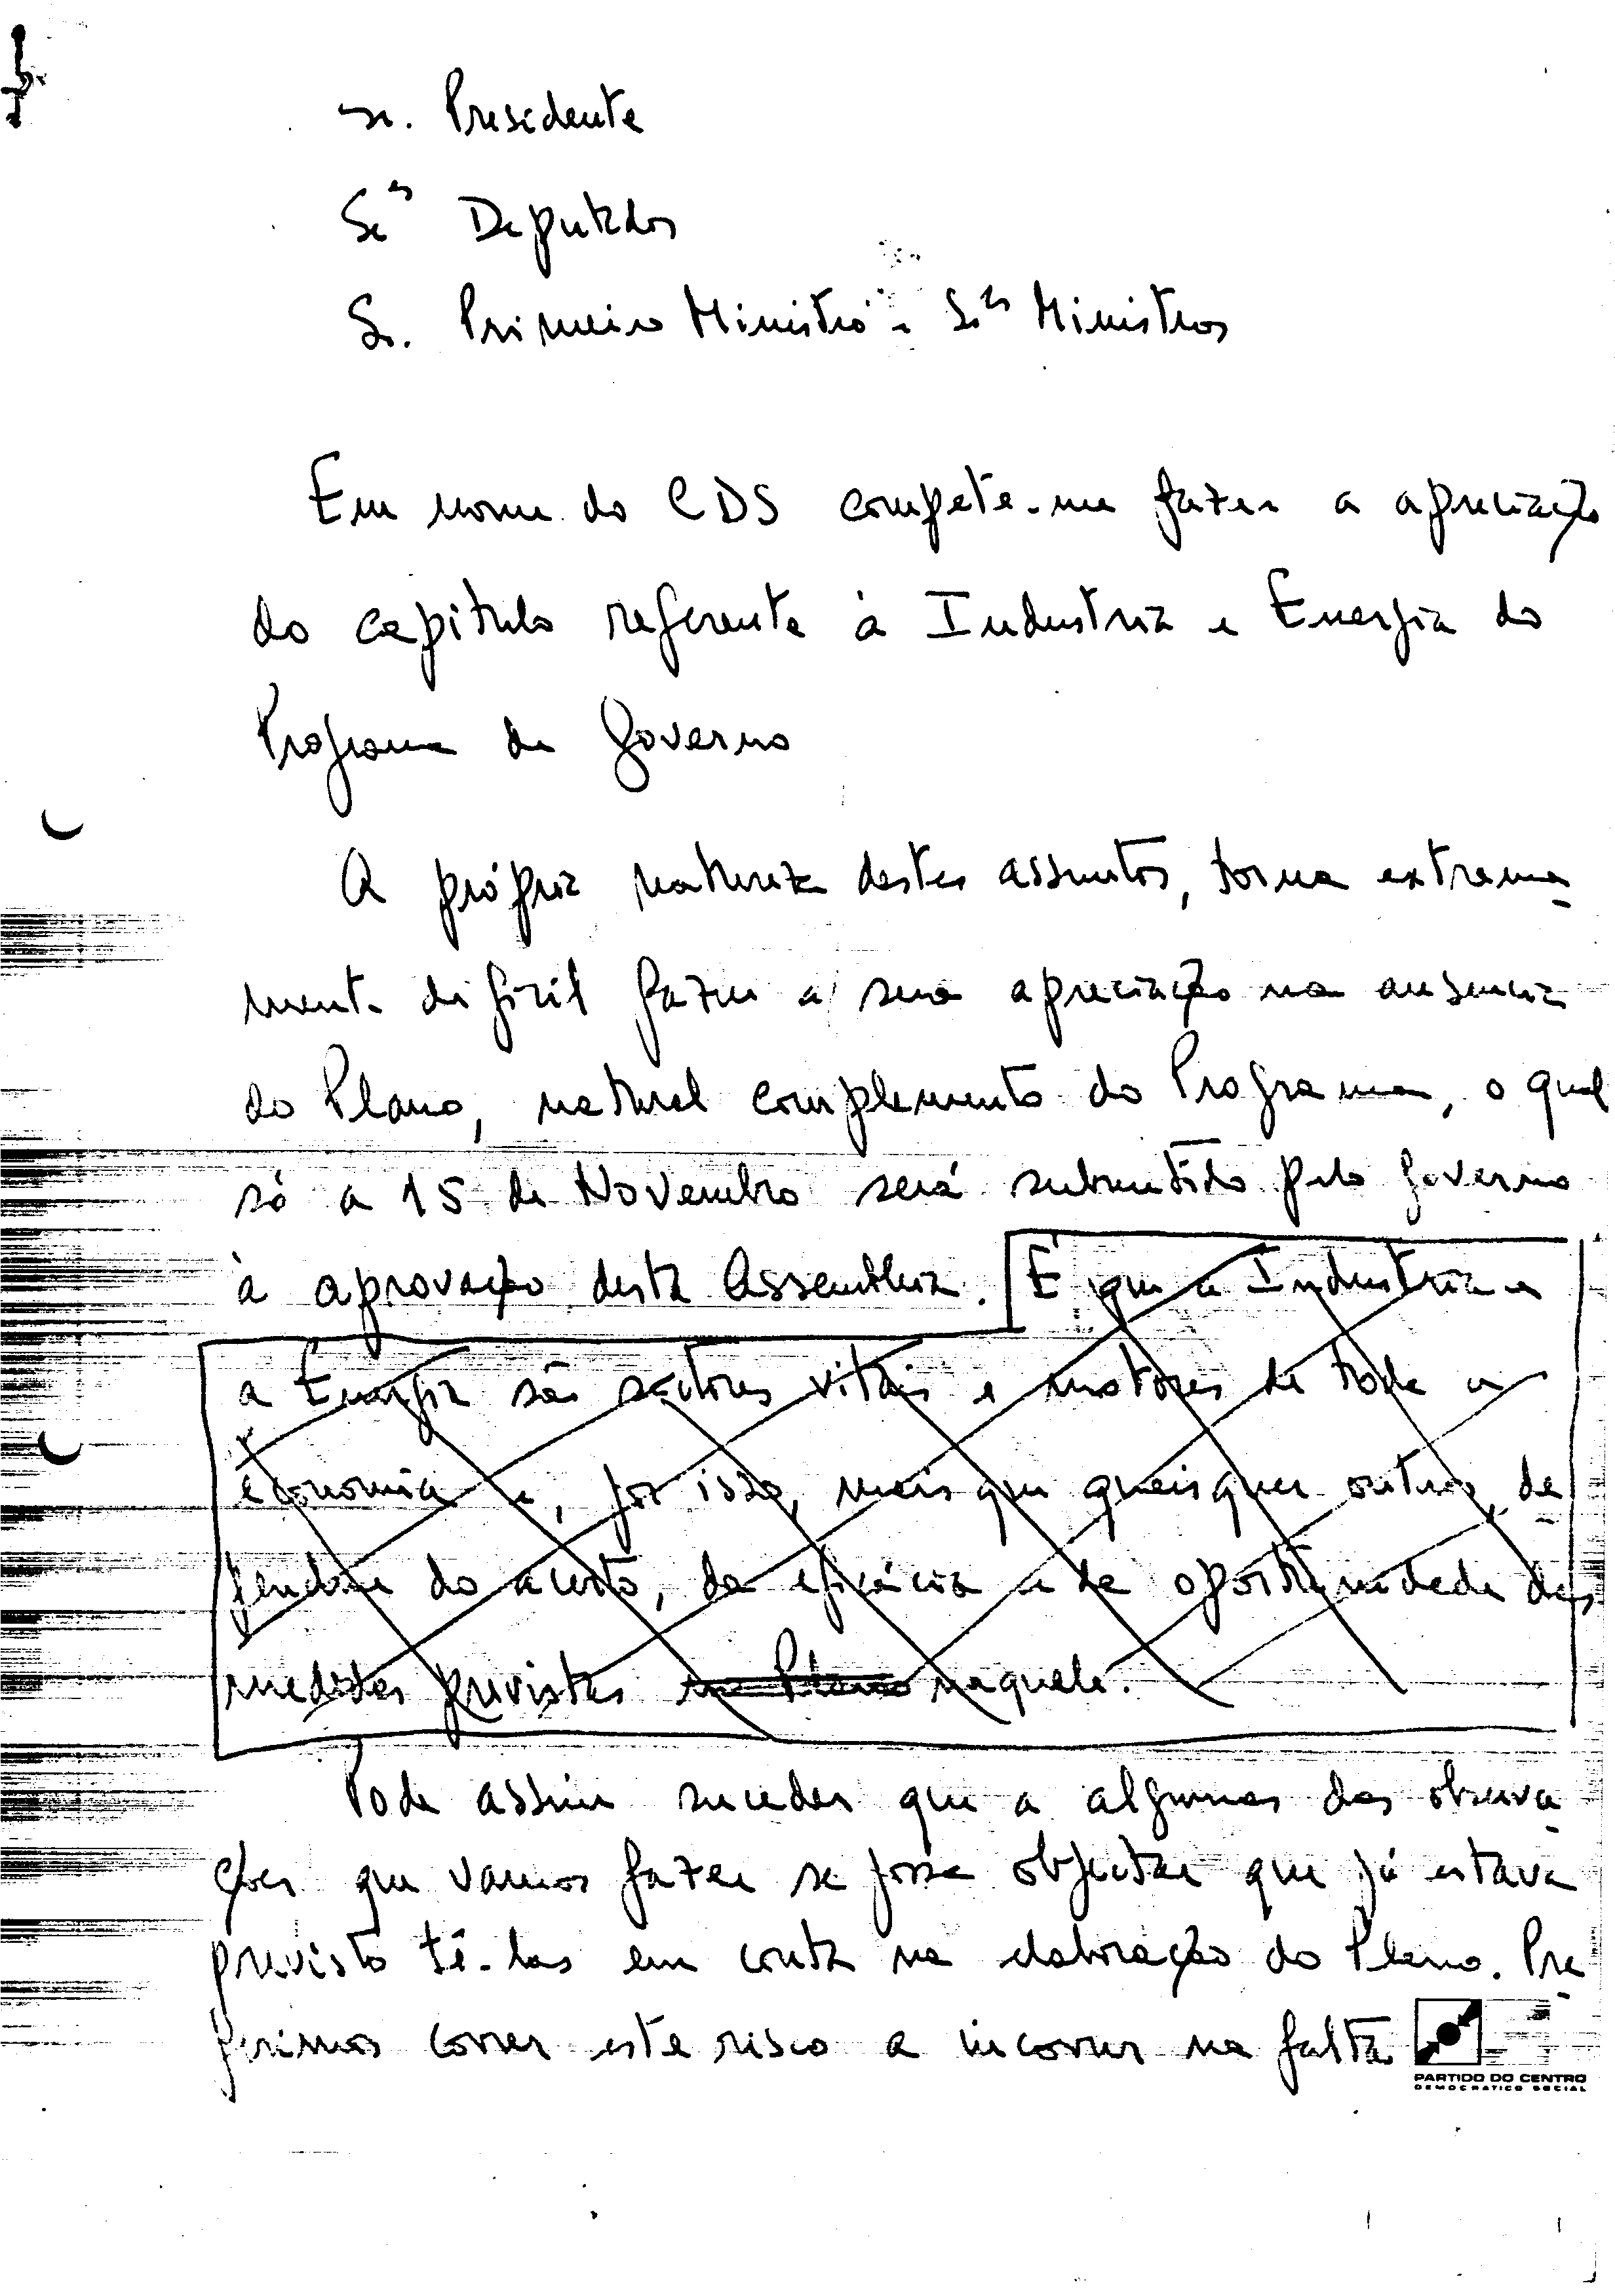 Sr. Presidente
Srs Deputados
Sr. Primeiro Ministro e Srs Ministros
Em nome do CDS compete-me fazer a apreciação
do capitulo referente à Industria e Energia do
Programa do Governo
A própria natureza destes assuntos, torna extrema
mente dificil fazer a sua apreciação na ausencia
do Plano, natural complemento do Programa, o qual
só a 15 de Novembro será submetido pelo Governo
à aprovação desta Assembleia. É que a Industria e
a Energia são sectores vitais e motores de toda a
economia e, por isso, mais que quaisquer outros, de
pendem do acerto, da eficácia e da oportunidade das
medidas previstas no Plano naquele.
Pode assim suceder que a algumas das observa
ções que vamos fazer se possa objectar que já estava
previsto tê-las em conta na elaboração do Plano. Pre
ferimos correr este risco a incorrer na falta
PARTIDO DO CENTRO
DEMOCRATICO SOCIAL